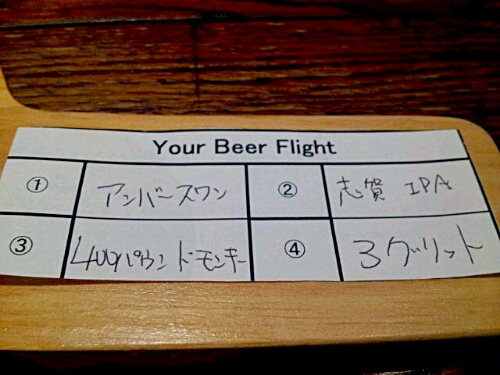 Your Beer Flight
① アンバースワン ② 志賀 IPA
③ 400パウンドモンキー ④ 3グリット